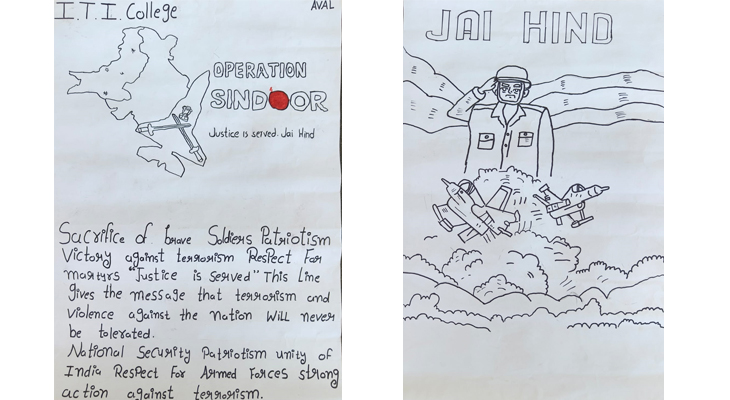 I.T.I. College
AVAL
OPERATION
SINDOOR
Justice is served. Jai Hind
Sacrifice of brave Soldiers Patriotism
Victory against terrorism Respect For
martyrs "Justice is served" This line
gives the message that terrorism and
violence against the Nation will never
be tolerated.
National Security Patriotism unity of
India Respect For Armed Forces strong
action against terrorism.
JAI HIND